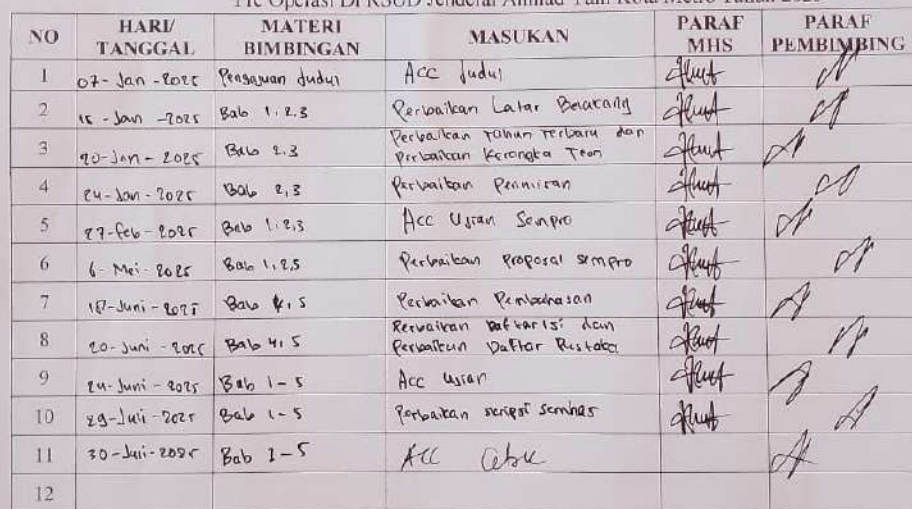 Pre Operasi Di RSUD Jenderal Ahmad Yani Kota Metro Tahun 2025
NO HARI/ TANGGAL MATERI BIMBINGAN MASUKAN PARAF MHS PARAF PEMBIMBING
1 07-Jan-2025 Pengajuan Judul Acc Judul
2 15-Jan-2025 Bab 1.2.3 Perbaikan Latar Belakang
3 20-Jan-2025 Bab 2.3 Perbaikan Tahun Terbaru dan
Perbaikan Kerangka Teori
4 24-Jan-2025 Bab 2,3 Perbaikan
5 27-Feb-2025 Bab 1.2,3 Acc Ujian Sempro
6 6-Mei-2025 Bab 1,2,3 Perbaikan Proposal sempro
7 Juni-2025 Bab 4,5 Perbaikan Pembahasan
8 20-Juni-2025 Bab 4,5 Perbaikan Daftar Isi dan
Perbaikan Daftar Pustaka
9 24-Juni-2025 Bab 1-5 Acc Ujian
10 29-Juli-2025 Bab 1-5 Perbaikan skripsi semhas
11 30-Juli-2025 Bab 1-5 Acc Cetak
12